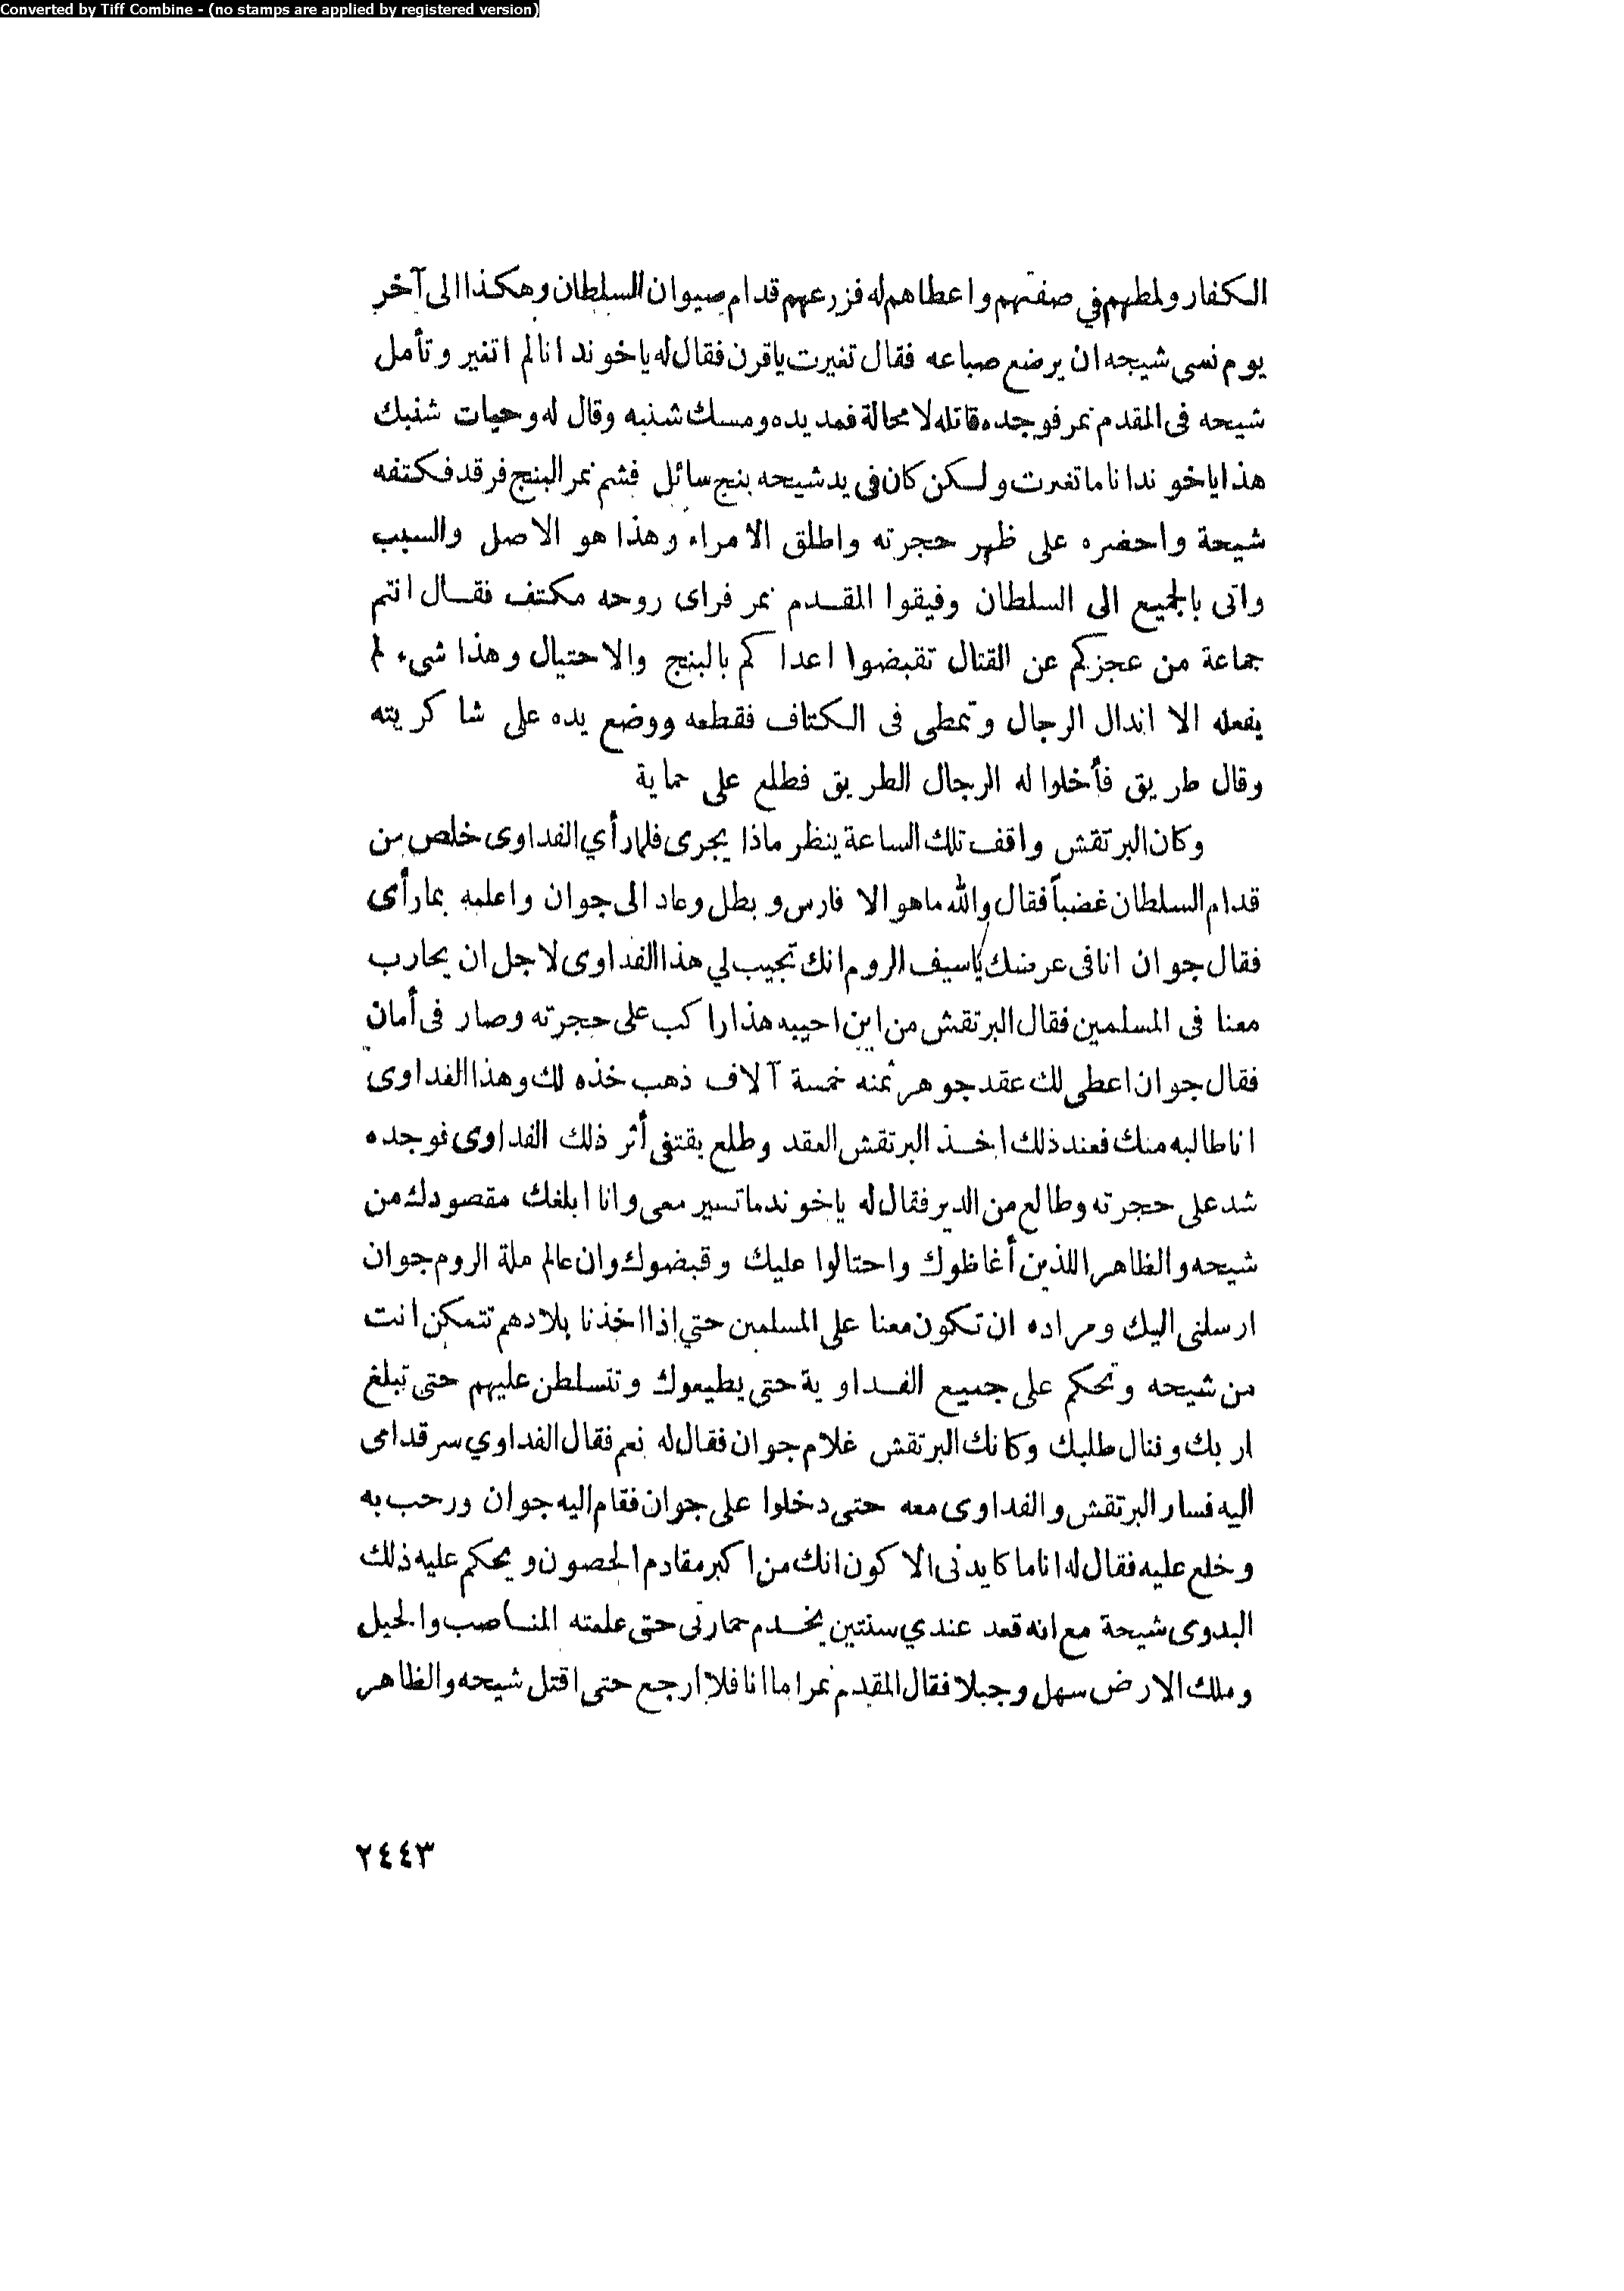 Converted by Tiff Combine - (no stamps are applied by registered version)
الكفار ولطهم في صفتهم واعطاهم له فزرعهم قدام صيوان السلطان وهكذا الى آخر
يوم نسى شيحه ان يرضع صباعه فقال تغيرت ياقرن فقال له ياخوند انالم اتغير وتأمل
شيحه فى المقدم نمر فوجده قاتله لا محالة فمد يده ومسك شنبه وقال له وحيات شنبك
هذا ياخوند انا ماتغيرت ولكن كان فى يد شيحه بنج سائل فشم نمر البنج فرقد فكتفه
شيحة واحضره على ظهر حجرته واطلق الامراء وهذا هو الاصل والسبب
واتى بالجميع الى السلطان وفيقوا المقدم نمر فراى روحه مكتف فقال انتم
جماعة من عجزكم عن القتال تقبضوا اعداكم بالبنج والاحتيال وهذا شىء لم
يفعله الا اندال الرجال وتمطى فى الكتاف فقطعه ووضع يده على شاكريته
وقال طريق فأخلوا له الرجال الطريق فطلع على حماية
وكان البرتقش واقف تلك الساعة ينظر ماذا يجرى فلما رأي الفداوى خلص من
قدام السلطان غضباً فقال والله ماهو الا فارس وبطل وعاد الى جوان واعلمه بمارأى
فقال جوان انا فى عرضك ياسيف الروم انك تجيب لي هذا الفداوى لاجل ان يحارب
معنا فى المسلمين فقال البرتقش من اين اجيبه هذا راكب على حجرته وصار فى أمان
فقال جوان اعطى لك عقد جوهر ثمنه خمسة آلاف ذهب خذه لك وهذا الفداوى
انا طالبه منك فعند ذلك اخذ البرتقش العقد وطلع يقتفى أثر ذلك الفداوى فوجده
شد على حجرته وطالع من الدير فقال له ياخوند ماتسير معى وانا ابلغك مقصودك من
شيحه والظاهر اللذين أغاظوك واحتالوا عليك وقبضوك وان عالم ملة الروم جوان
ارسلنى اليك ومراده ان تكون معنا على المسلمين حتي إذا اخذنا بلادهم تتمكن انت
من شيحه وتحكم على جميع الفداوية حتى يطيعوك وتتسلطن عليهم حتى تبلغ
اربك وننال طلبك وكانك البرتقش غلام جوان فقال له نعم فقال الفداوي سر قدامى
اليه فسار البرتقش والفداوى معه حتى دخلوا على جوان فقام اليه جوان ورحب به
وخلع عليه فقال له انا ماكايدنى الا كون انك من اكبر مقادم الحصون ويحكم عليه ذلك
البدوى شيحة مع انه قعد عندي سنتين يخدم حمارتى حتى علمته المناصب والحيل
وملك الارض سهل وجبلا فقال المقدم نمر اما انا فلا ارجع حتى اقتل شيحه والظاهر
٢٤٤٣